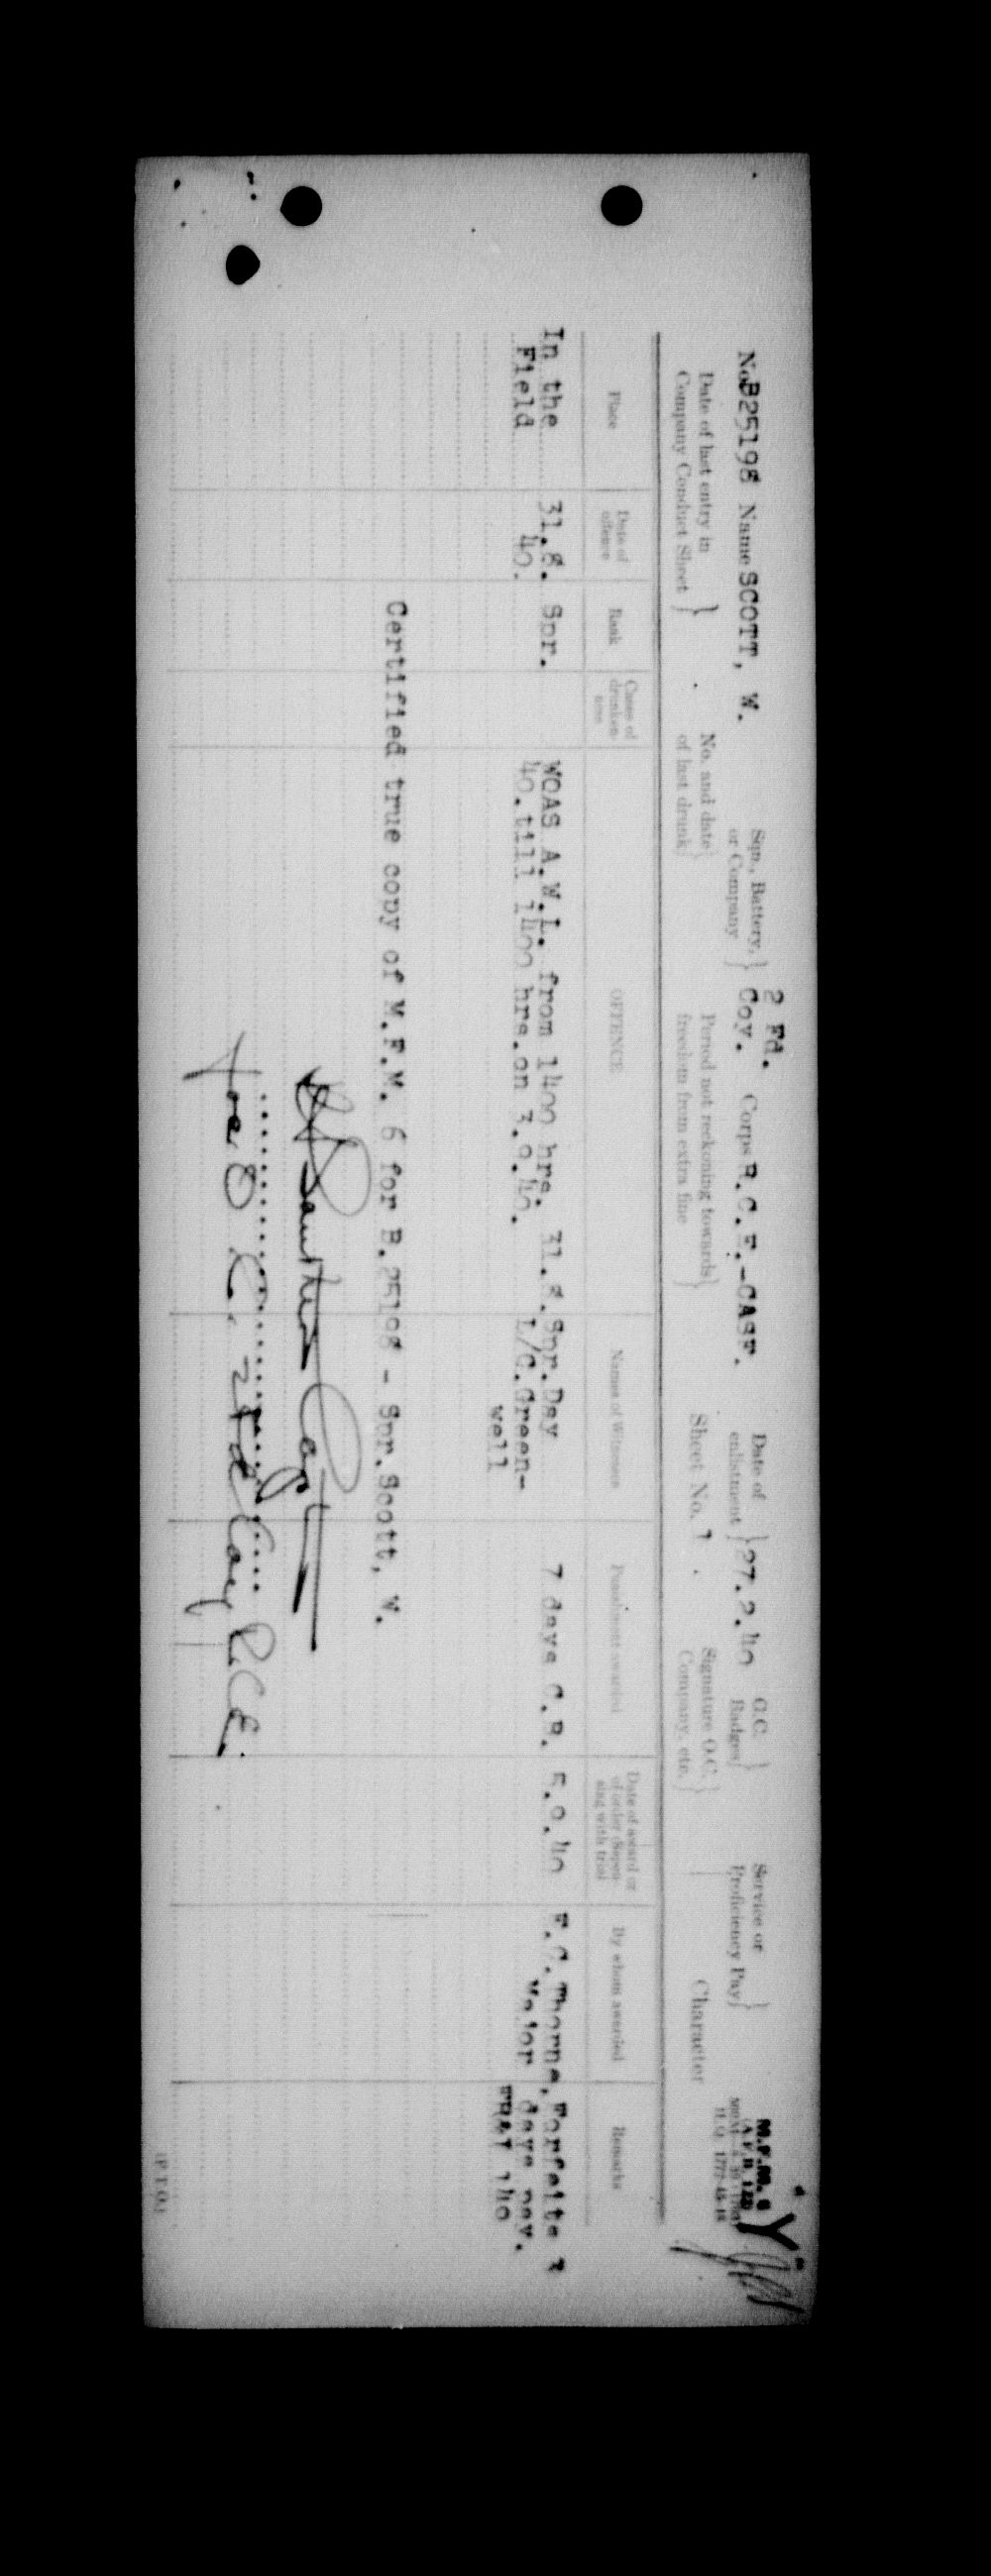 "Y"
M.F.M. 6
2 Fd.
No. B25198 Name SCOTT, W. Sqn., Battery, or Company } Coy. Corps R.C.E.-CASF. Date of enlistment } 27.2.40 G.C. Badges } Service or Proficiency Pay }
Date of last entry in Company Conduct Sheet } No. and date of last drunk } Period not reckoning towards freedom from extra fine } Sheet No. 1. Signature O.C. Company, etc. } Character
Place Date of offence Rank Cases of drunkenness OFFENCE Names of Witnesses Punishment awarded Date of award or of order dispensing with trial By whom awarded Remarks
In the 31.8. Spr. WOAS A.W.L. from 1400 hrs. 31.8. Spr.Day 7 days C.B. 5.9.40 Thorne, Forfeits 3
Field 40. 40.till 1400 hrs.on 3.9.40. L/C.Green- Major days pay.
well
Certified true copy of M.F.M. 6 for B.25198 - Spr.Scott, W.
Capt
for O.C. 2 Fd Coy RCE.
(P.T.O.)